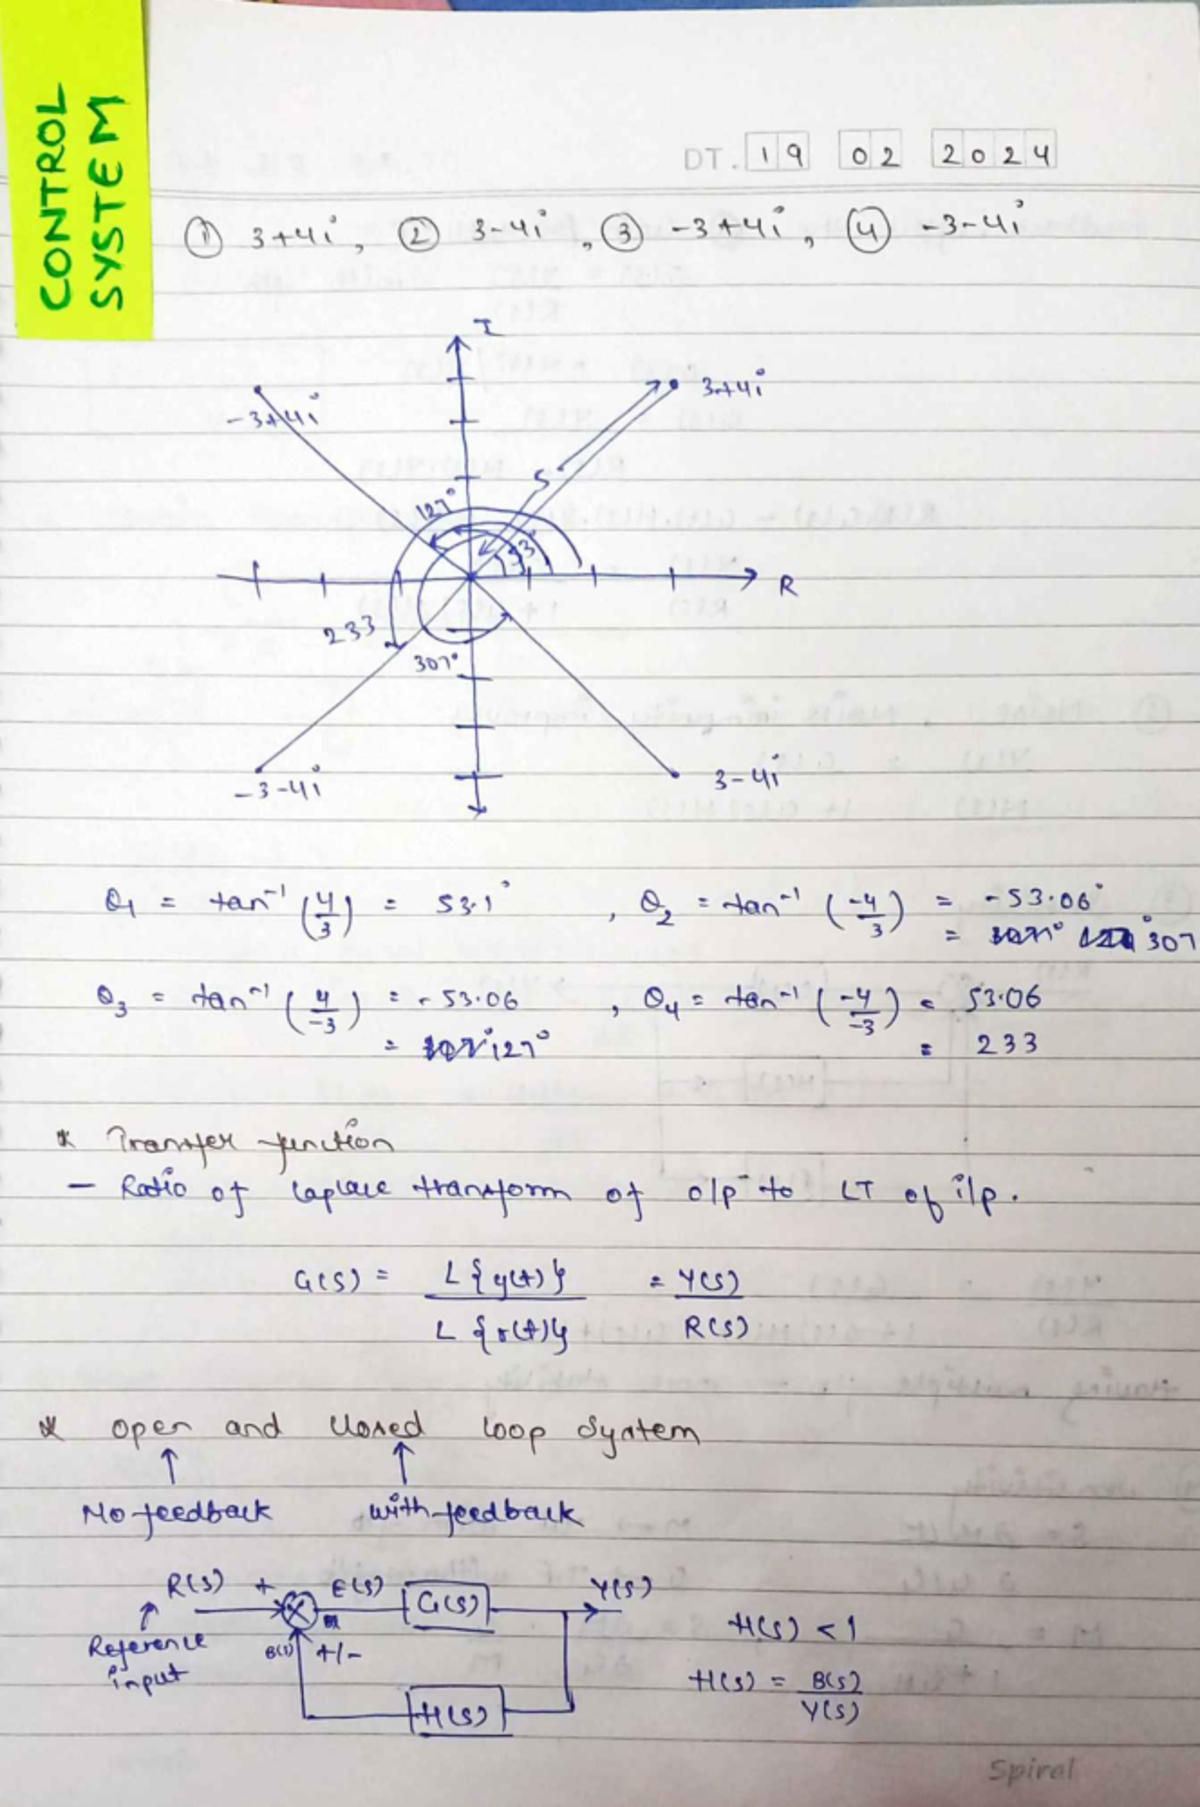 CONTROL
SYSTEM
DT. 19 02 2024
① 3+4i, ② 3-4i, ③ -3+4i, ④ -3-4i
I
-3+4i
3+4i
5
127°
53°
R
233
307°
-3-4i
3-4i
θ₁ = tan⁻¹ (4/3) = 53.1° , θ₂ = tan⁻¹ (-4/3) = -53.06°
= 307°
θ₃ = tan⁻¹ (4/-3) = -53.06 , θ₄ = tan⁻¹ (-4/-3) = 53.06
= 127° = 233
* Transfer function
- Ratio of laplace transform of o/p to LT of i/p.
G(s) = L{y(t)} / L{r(t)} = Y(s) / R(s)
* Open and Closed loop System
↑ ↑
No feedback with feedback
R(s) + E(s) G(s) Y(s)
Reference
input
B(s) +/-
H(s)
H(s) < 1
H(s) = B(s) / Y(s)
Spiral